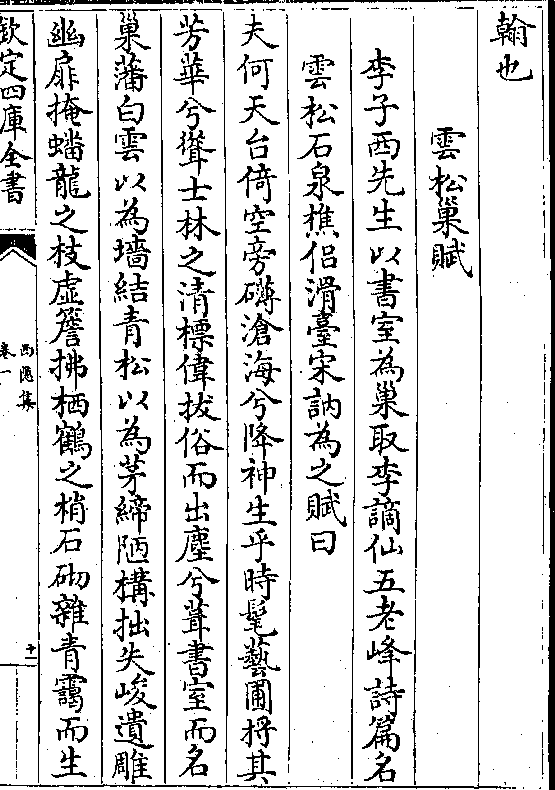 翰也
雲松巢賦
李子西先生以書室為巢取李謫仙五老峰詩篇名
雲松石泉樵侶滑臺宋訥為之賦曰
夫何天台倚空旁礴滄海兮降神生乎時髦藝圃捋其
芳華兮聳士林之清標偉拔俗而出塵兮葺書室而名
巢藩白雲以為墻結青松以為茅締陋構拙失峻遺雕
幽扉掩蟠龍之枝虛簷拂栖鶴之梢石砌雜青靄而生
欽定四庫全書
西隱集
卷一
十一